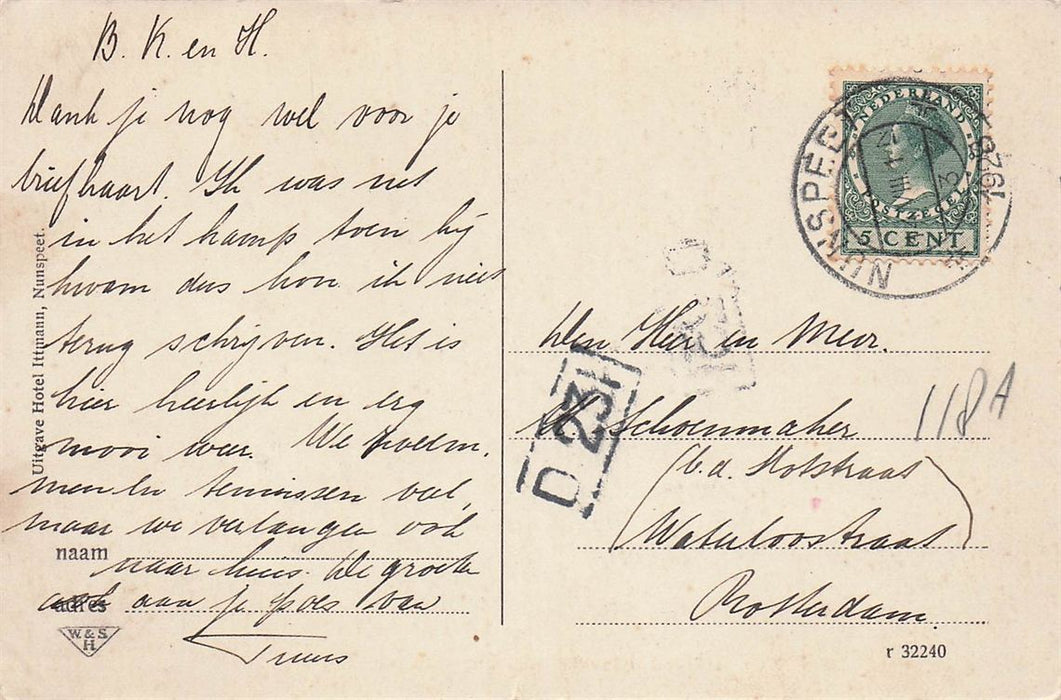 B. K. en H.
Dank je nog wel voor je
briefkaart. Ik was net
in het kamp toen hij
kwam dus kon ik niet
terug schrijven. Het is
hier heerlijk en erg
mooi weer. We
en tennissen veel,
maar we verlangen ook
naar huis. De groeten
ook aan je poes van
Truus
Uitgave Hotel Ittmann, Nunspeet.
naam
adres
W. & S.
H
NEDERLAND
POSTZEGEL
5 CENT
NUNSPEET
1928
D 23
Den Heer en Mevr.
Schoenmaker
118A
(b.d. Hofstraat)
Waterloostraat
Rotterdam.
r 32240